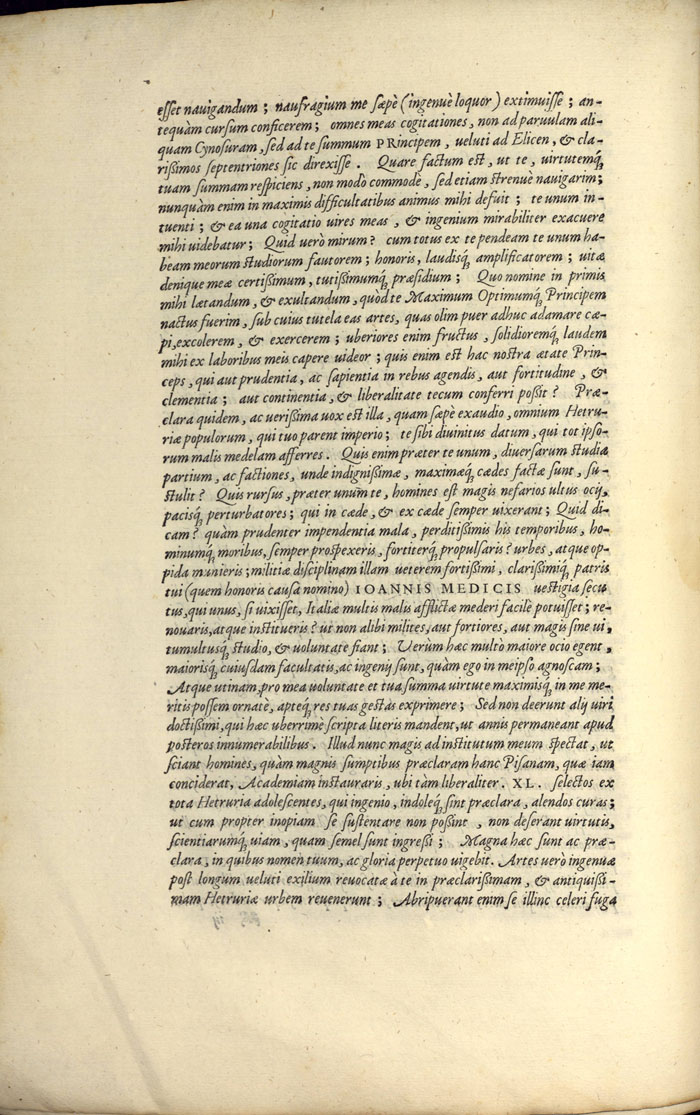 esset nauigandum ; naufragium me sæpè (ingenuè loquor) extimuisse ; an-
tequàm cursum conficerem ; omnes meas cogitationes, non ad paruulam ali-
quam Cynosuram, sed ad te summum PRincipem, veluti ad Elicen, & cla-
rißimos septentriones sic direxisse. Quare factum est, ut te, virtutemq́;
tuam summam respiciens, non modò commodè, sed etiam strenuè nauigarim;
nunquàm enim in maximis difficultatibus animus mihi defuit ; te unum in-
tuenti ; & ea una cogitatio uires meas, & ingenium mirabiliter exacuere
mihi uidebatur ; Quid uerò mirum? cum totus ex te pendeam te unum ha-
beam meorum studiorum fautorem ; honoris, laudisq́; amplificatorem ; uitæ
denique meæ certißimum, tutißimumq́; præsidium ; Quo nomine in primis
mihi lætandum, & exultandum, quòd te Maximum Optimumq́; Principem
nactus fuerim, sub cuius tutela eas artes, quas olim puer adhuc adamare cæ-
pi, excolerem, & exercerem ; uberiores enim fructus, solidioremq́; laudem
mihi ex laboribus meis capere uideor ; quis enim est hac nostra ætate Prin-
ceps, qui aut prudentia, ac sapientia in rebus agendis, aut fortitudine, &
clementia ; aut continentia, & liberalitate tecum conferri poßit? Præ-
clara quidem, ac uerißima uox est illa, quam sæpè exaudio, omnium Hetru-
riæ populorum, qui tuo parent imperio ; te sibi diuinitus datum, qui tot ipso-
rum malis medelam afferres. Quis enim præter te unum, diuersarum studia
partium, ac factiones, unde indignißimæ, maximæq́; cædes factæ sunt, su-
stulit? Quis rursus, præter unum te, homines est magis nefarios ultus ocij,
pacisq́; perturbatores ; qui in cæde, & ex cæde semper uixerant ; Quid di-
cam? quàm prudenter impendentia mala, perditißimis his temporibus, ho-
minumq́; moribus, semper prospexeris, fortiterq́; propulsaris? urbes, atque op-
pida munieris ; militiæ disciplinam illam ueterem fortißimi, clarißimiq́; patris
tui (quem honoris causa nomino) IOANNIS MEDICIS uestigia secu
tus, qui unus, si uixisset, Italiæ multis malis afflictæ mederi facilè potuisset ; re-
nouaris, atque institueris? ut non alibi milites, aut fortiores, aut magis sine ui,
tumultusq́; studio, & uoluntate fiant ; Uerùm hæc multò maiore ocio egent,
maiorisq́; cuiusdam facultatis, ac ingenij sunt, quàm ego in meipso agnoscam ;
Atque utinam, pro mea uoluntate et tua summa uirtute maximisq́; in me me-
ritis possem ornatè, aptèq́; res tuas gestas exprimere ; Sed non deerunt alij uiri
doctißimi, qui hæc uberrimè scripta literis mandent, ut annis permaneant apud
posteros innumerabilibus. Illud nunc magis ad institutum meum spectat, ut
sciant homines, quàm magnis sumptibus præclaram hanc Pisanam, quæ iam
conciderat, Academiam instauraris, ubi tàm liberaliter. XL. selectos ex
tota Hetruria adolescentes, qui ingenio, indoleq́; sint præclara, alendos curas ;
ut cum propter inopiam se sustentare non poßint, non deserant uirtutis,
scientiarumq́; uiam, quam semel sunt ingreßi ; Magna hæc sunt ac præ-
clara, in quibus nomen tuum, ac gloria perpetuo uigebit. Artes uerò ingenuæ
post longum veluti exilium reuocatæ à te in præclarißimam, & antiquißi-
mam Hetruriæ urbem reuenerunt ; Abripuerant enim se illinc celeri fuga